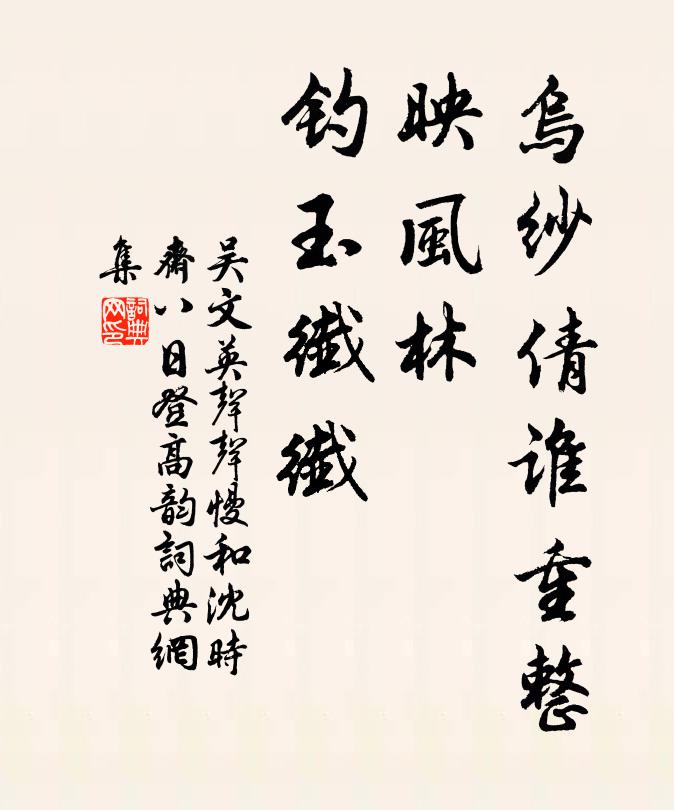 烏紗倩誰重整
映風林
鈎玉纖纖
吴文英聲聲慢和沈時
齋八日登高韵詞典網
集
詞典
网印